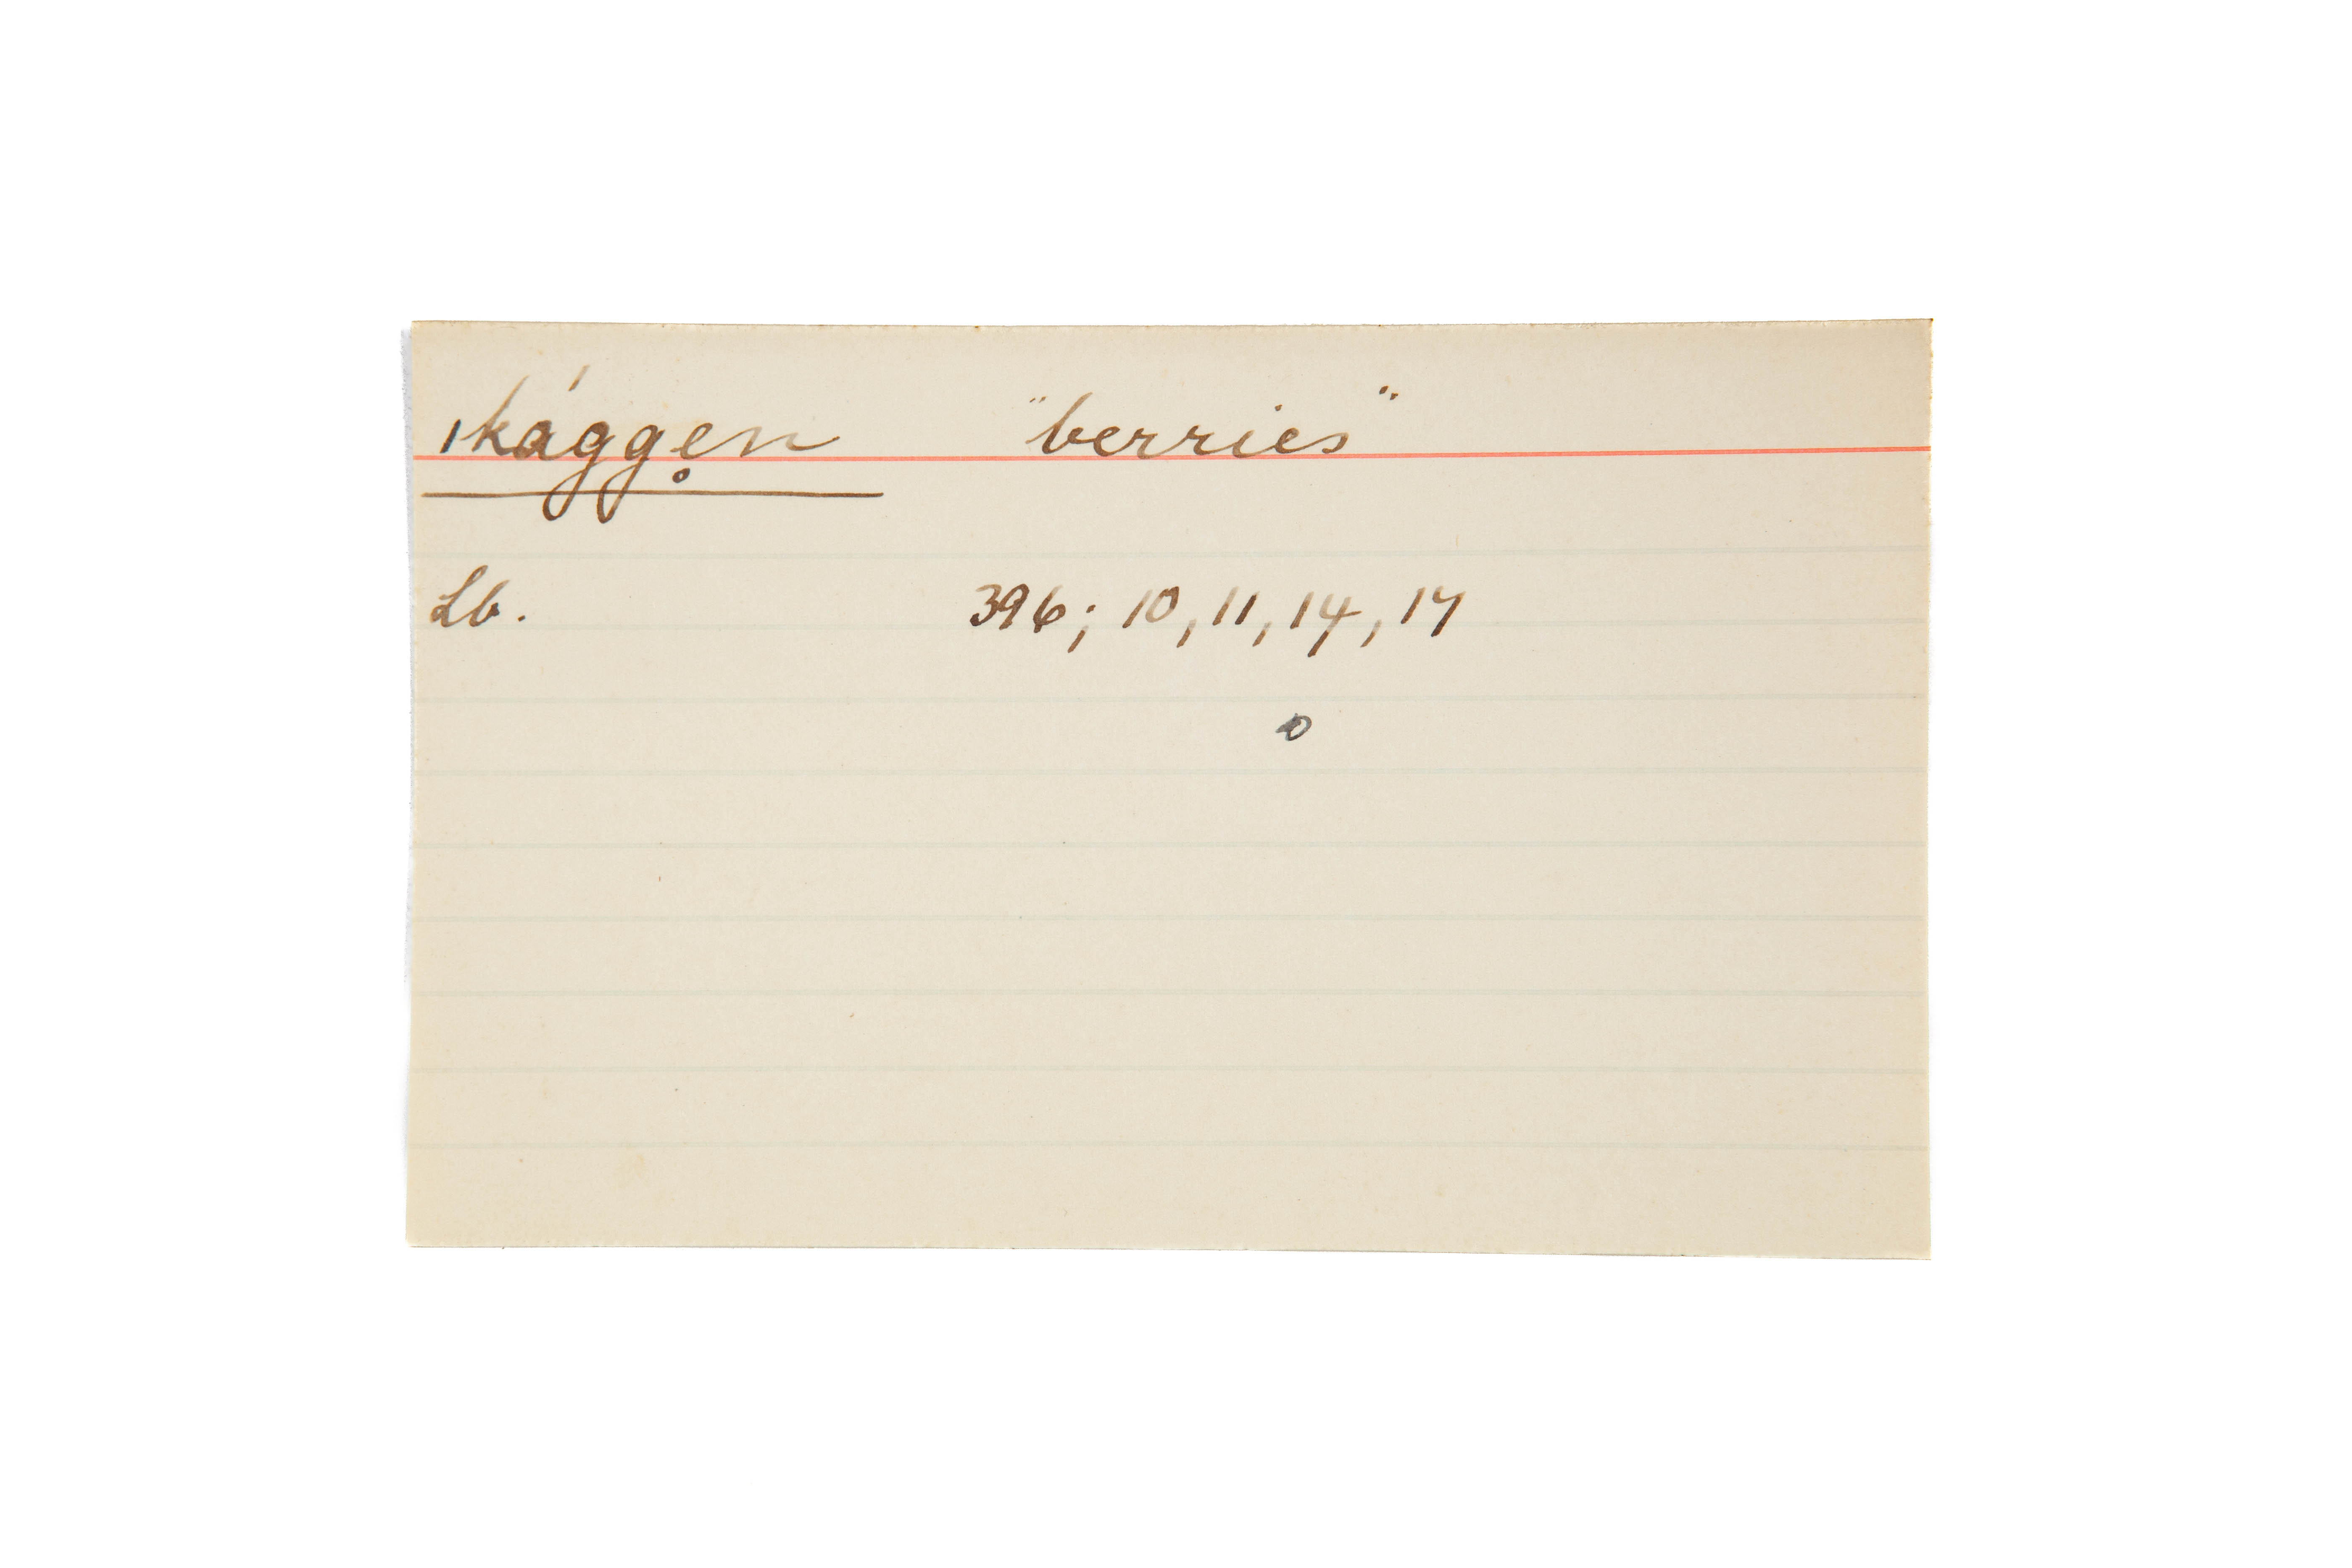 ǀkágge̥n "berries"
Lb. 396; 10, 11, 14, 17